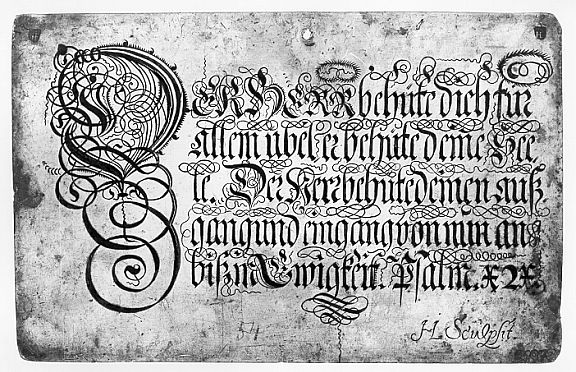 DER HERR behüte dich für
allem übel, er behüte deine See=
le. Der Herr behüte deinen auß=
gang und eingang von nun an
biß in Ewigkeit. Psalm.
54
HL Sculpsit